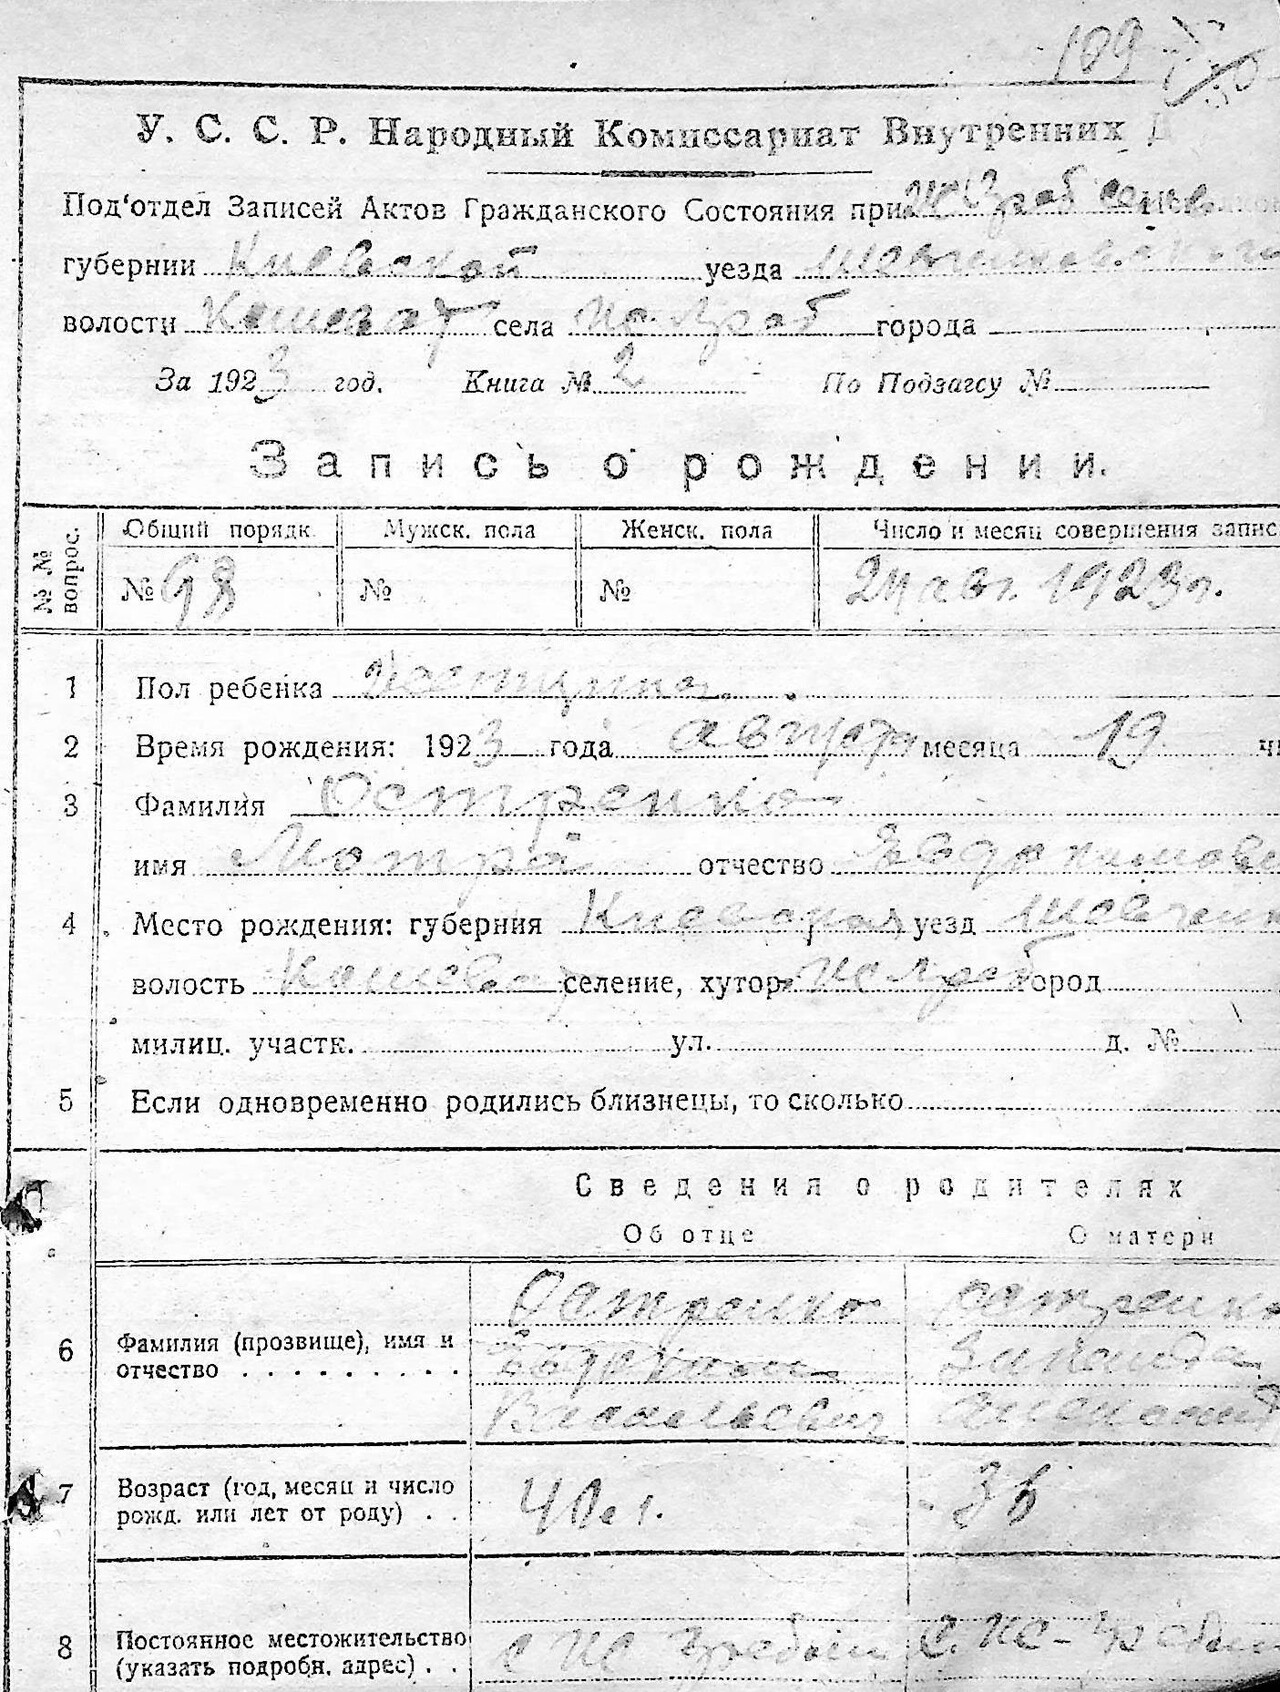 109
У. С. С. Р. Народный Комиссариат Внутренних Д
Под‘отдел Записей Актов Гражданского Состояния при
губернии Киевской уезда Шевченковского
волости Кошеват села города
За 1923 год. Книга № 2 По Подзагсу №
Запись о рождении.
№ № вопрос. Общий порядк. Мужск. пола Женск. пола Число и месяц совершения запис
№ 98 № № 24 авг. 1923 г.
1 Пол ребенка
2 Время рождения: 1923 года август месяца 19 чи
3 Фамилия Остренко
имя Мотря отчество Евдокимовн
4 Место рождения: губерния Киевская уезд Шевченк
волость Кошеват селение, хутор город
милиц. участк. ул. д. №
5 Если одновременно родились близнецы, то сколько
Сведения о родителях
Об отце О матери
6 Фамилия (прозвище), имя и отчество Остренко Остренко
Евдоким Зинаида
Васильевич
7 Возраст (год, месяц и число рожд. или лет от роду) 40 л. 36
8 Постоянное местожительство (указать подробн. адрес)